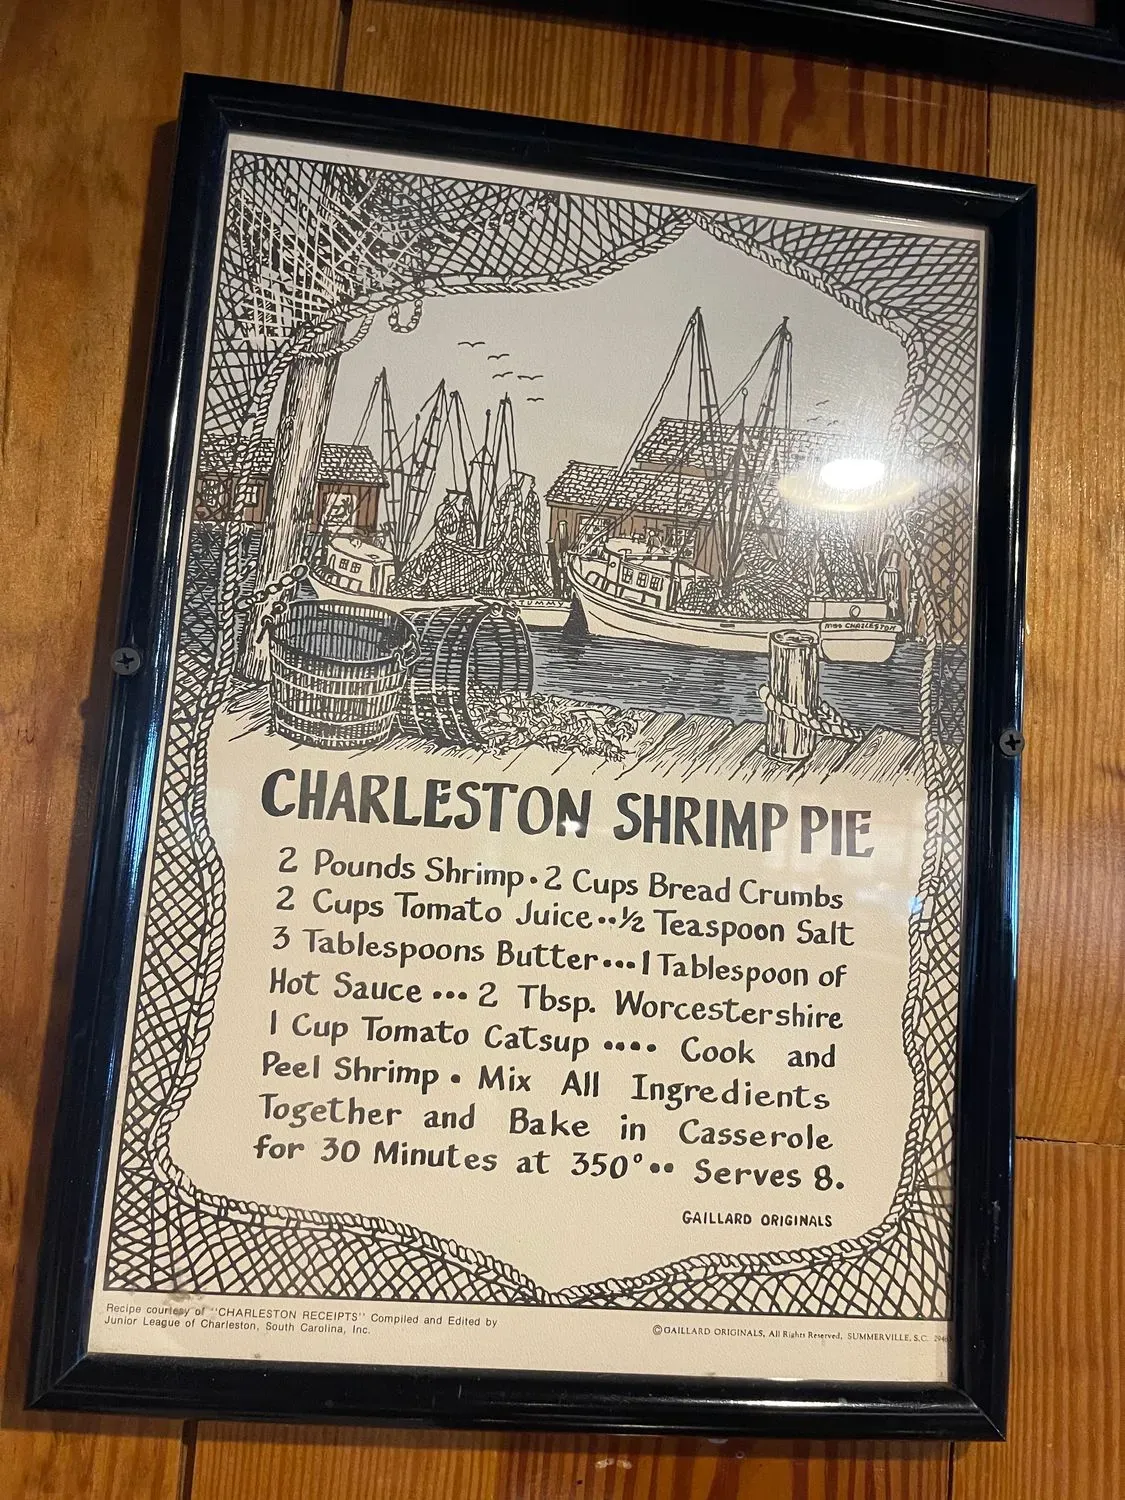 UMMY
MISS CHARLESTON
CHARLESTON SHRIMP PIE
2 Pounds Shrimp • 2 Cups Bread Crumbs
2 Cups Tomato Juice •• ½ Teaspoon Salt
3 Tablespoons Butter ••• 1 Tablespoon of
Hot Sauce ••• 2 Tbsp. Worcestershire
1 Cup Tomato Catsup •••• Cook and
Peel Shrimp • Mix All Ingredients
Together and Bake in Casserole
for 30 Minutes at 350° •• Serves 8.
GAILLARD ORIGINALS
Recipe courtesy of "CHARLESTON RECEIPTS" Compiled and Edited by
Junior League of Charleston, South Carolina, Inc.
©GAILLARD ORIGINALS, All Rights Reserved, SUMMERVILLE, S.C.